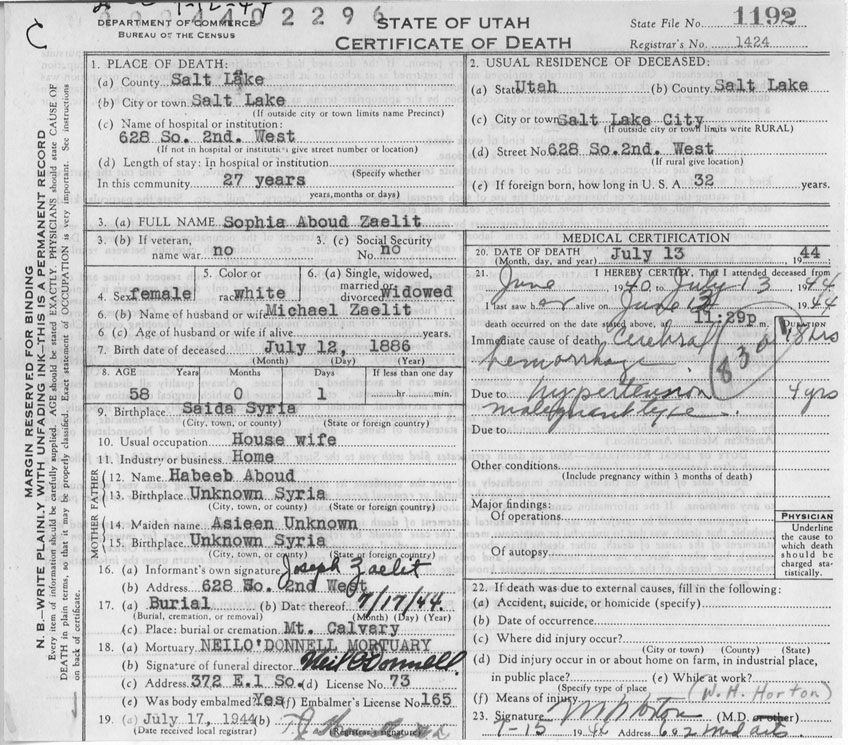 1402296
DEPARTMENT OF COMMERCE
BUREAU OF THE CENSUS
C
STATE OF UTAH
CERTIFICATE OF DEATH
State File No. 1192
Registrar's No. 1424
MARGIN RESERVED FOR BINDING
N. B.—WRITE PLAINLY WITH UNFADING INK—THIS IS A PERMANENT RECORD
Every item of information should be carefully supplied. AGE should be stated EXACTLY. PHYSICIANS should state CAUSE OF
DEATH in plain terms, so that it may be properly classified. Exact statement of OCCUPATION is very important. See instructions
on back of certificate.
1. PLACE OF DEATH:
(a) County Salt Lake
(b) City or town Salt Lake
(If outside city or town limits name Precinct)
(c) Name of hospital or institution:
628 So. 2nd. West
(If not in hospital or institution give street number or location)
(d) Length of stay: In hospital or institution
(Specify whether
In this community 27 years
years, months or days)
2. USUAL RESIDENCE OF DECEASED:
(a) State Utah (b) County Salt Lake
(c) City or town Salt Lake City
(If outside city or town limits write RURAL)
(d) Street No. 628 So.2nd. West
(If rural give location)
(e) If foreign born, how long in U. S. A. 32 years.
3. (a) FULL NAME Sophia Aboud Zaelit
3. (b) If veteran,
name war no
3. (c) Social Security
No. no
4. Sex female
5. Color or
race white
6. (a) Single, widowed,
married or
divorced Widowed
6. (b) Name of husband or wife Michael Zaelit
6 (c) Age of husband or wife if alive years.
7. Birth date of deceased July 12, 1886
(Month) (Day) (Year)
8. AGE Years Months Days If less than one day
58 0 1 hr. min.
9. Birthplace Saida Syria
(City, town, or county) (State or foreign country)
10. Usual occupation House wife
11. Industry or business Home
FATHER
12. Name Habeeb Aboud
13. Birthplace Unknown Syria
(City, town, or county) (State or foreign country)
MOTHER
14. Maiden name Asieen Unknown
15. Birthplace Unknown Syria
(City, town, or county) (State or foreign country)
16. (a) Informant's own signature Joseph Zaelit
(b) Address 628 So. 2nd West
17. (a) Burial (b) Date thereof 7/17/44.
(Burial, cremation, or removal) (Month) (Day) (Year)
(c) Place: burial or cremation Mt. Calvary
18. (a) Mortuary NEILO'DONNELL MORTUARY
(b) Signature of funeral director Neil O'Donnell.
(c) Address 372 E.1 So. (d) License No. 73
(e) Was body embalmed? Yes (f) Embalmer's License No. 165
19. (a) July 17, 1944 (b)
(Date received local registrar) (Registrar's signature)
MEDICAL CERTIFICATION
20. DATE OF DEATH July 13 1944
(Month, day, and year)
21. I HEREBY CERTIFY, That I attended deceased from
June 1940 to July 13 1944
I last saw her alive on June 13 1944
death occurred on the date stated above, at 11:29p m.
DURATION
Immediate cause of death Cerebral 18 hrs
hemorrhage
830
Due to hypertension 4 yrs
malignant type
Due to
Other conditions
(Include pregnancy within 3 months of death)
Major findings:
Of operations
Of autopsy
PHYSICIAN
Underline
the cause to
which death
should be
charged sta-
tistically.
22. If death was due to external causes, fill in the following:
(a) Accident, suicide, or homicide (specify)
(b) Date of occurrence
(c) Where did injury occur?
(City or town) (County) (State)
(d) Did injury occur in or about home on farm, in industrial place,
in public place? (e) While at work?
(Specify type of place
(f) Means of injury (W. H. Horton)
23. Signature W H Horton (M.D. or other)
7-15 1944 Address 692 Med arts